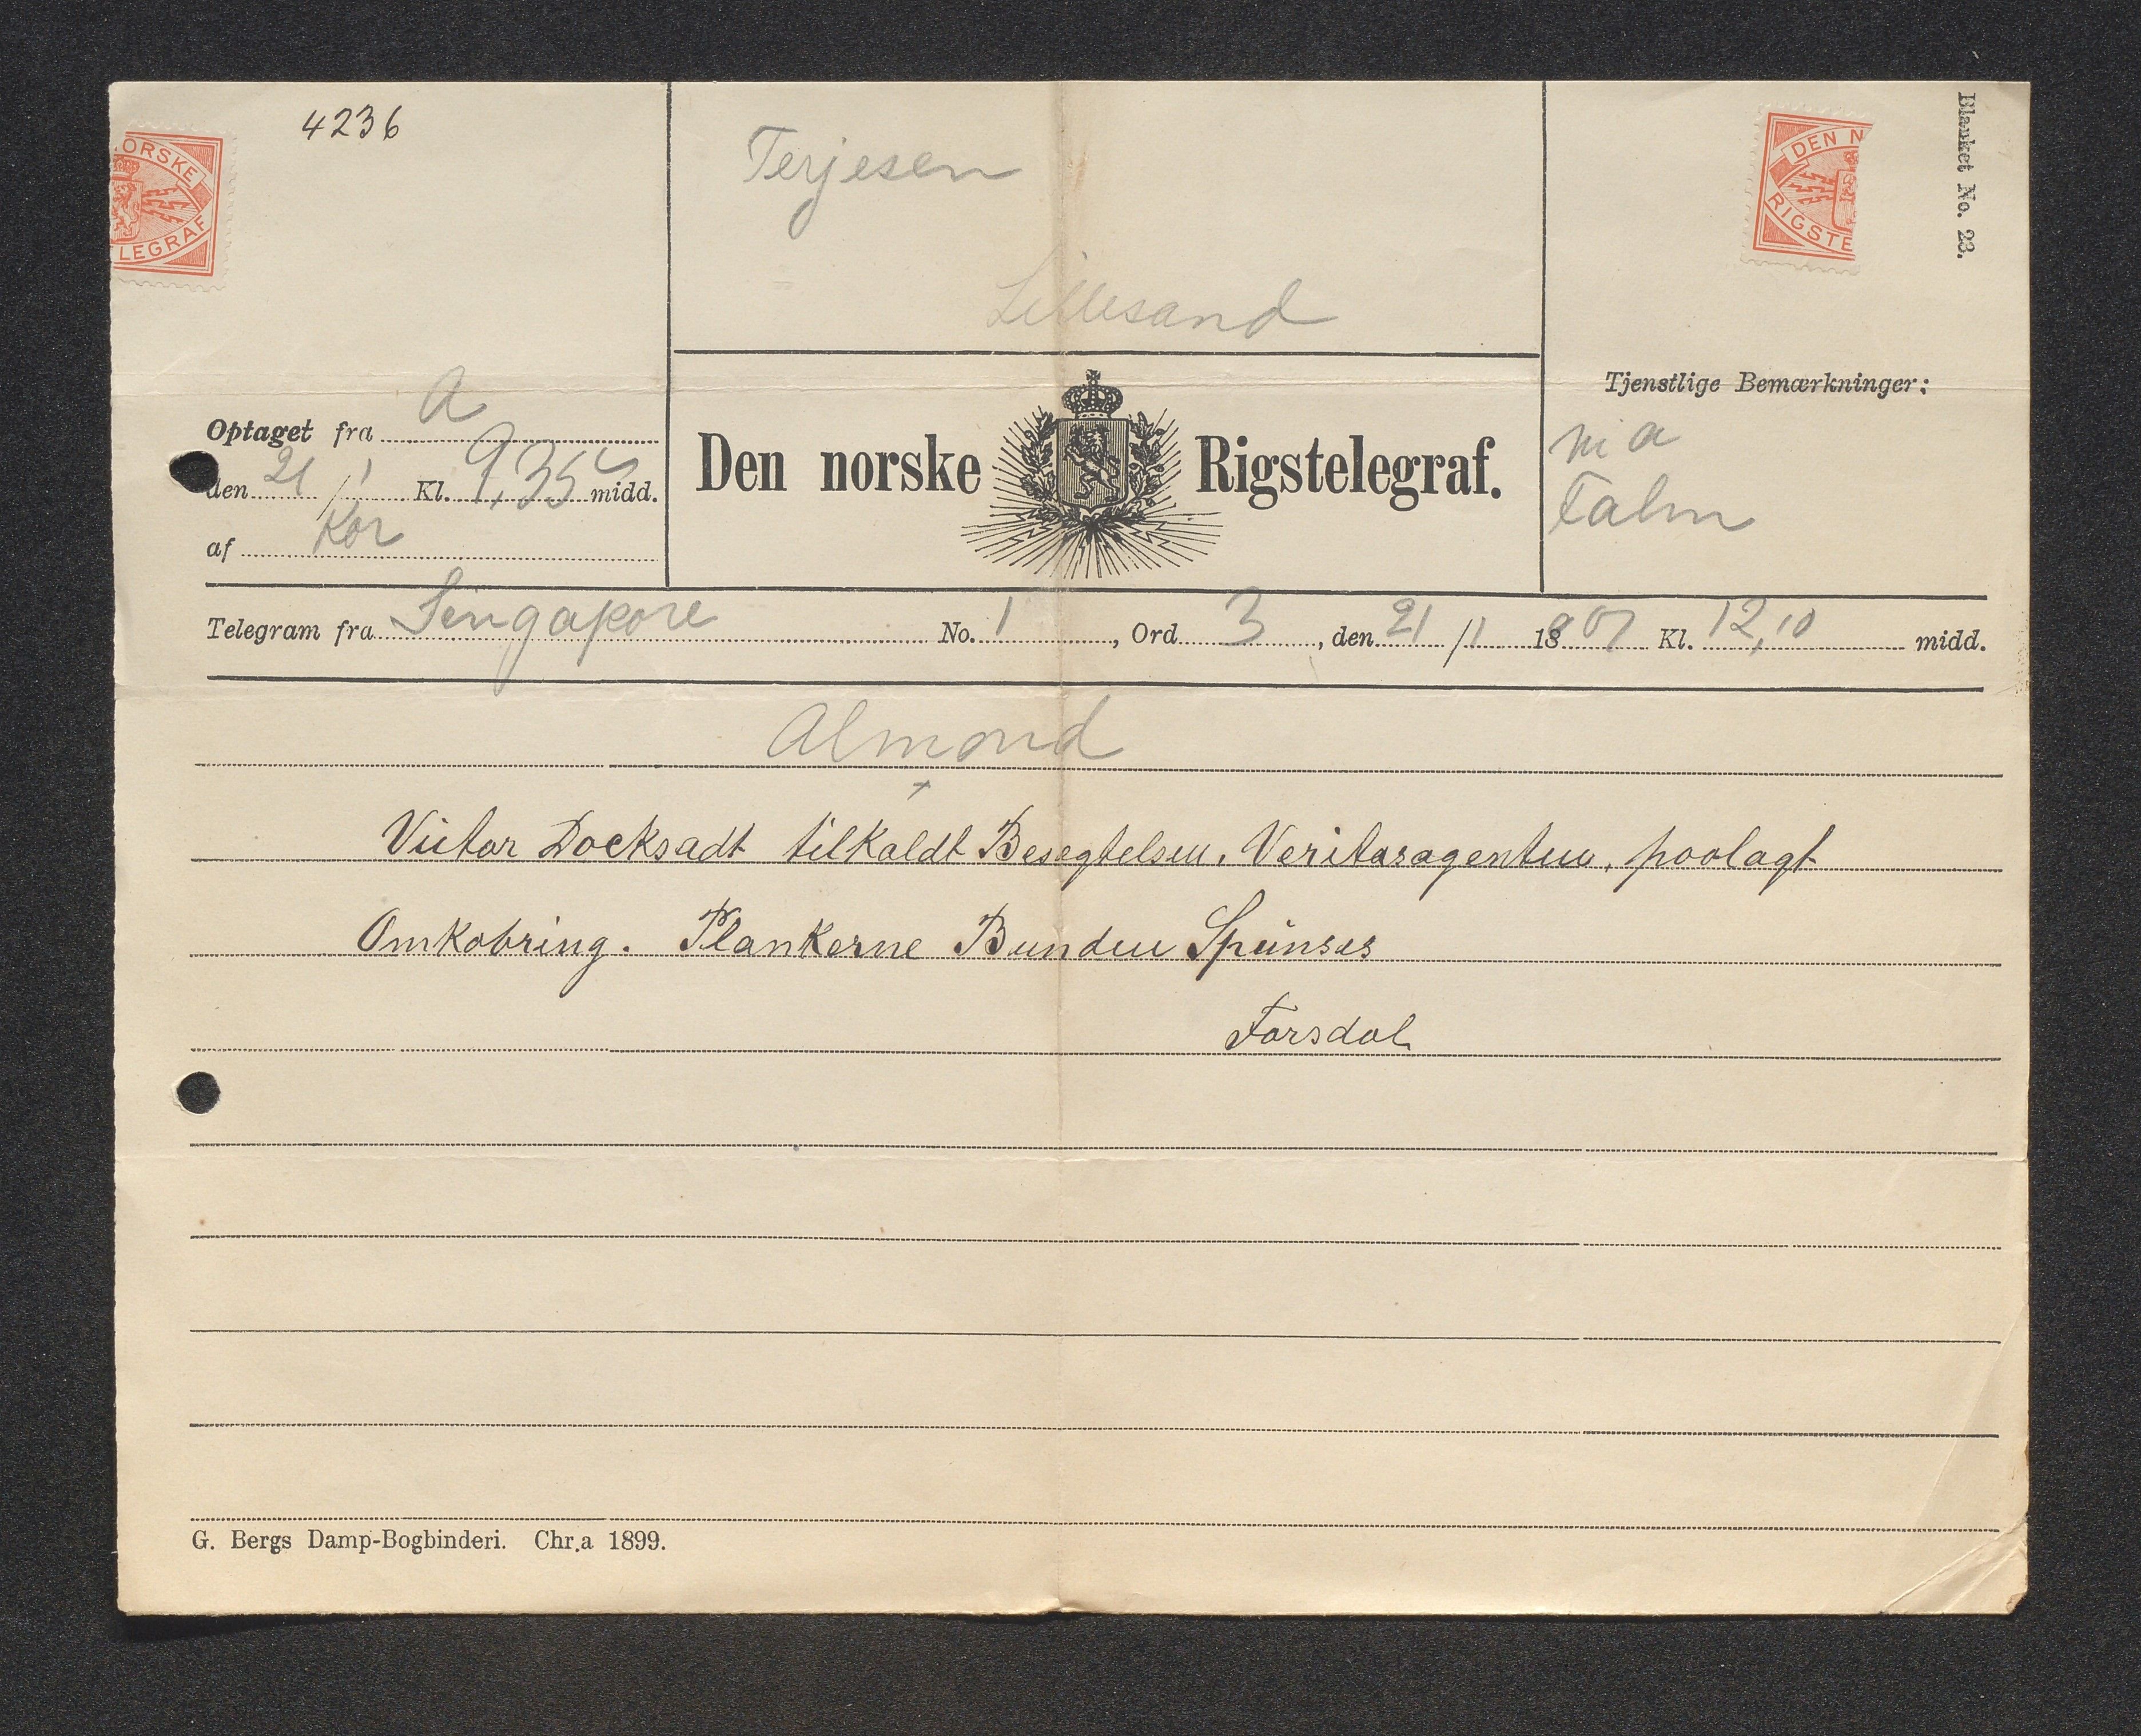 4236
ORSKE
LEGRAF
Terjesen
Lillesand
DEN N
RIGSTE
Blanket No. 23.
Optaget fra A
den 21/1 Kl. 9,35 midd.
af Kor
Den norske Rigstelegraf.
Tjenstlige Bemærkninger:
via
Falm
Telegram fra Singapore No. 1, Ord 3, den 21/1 1807 Kl. 12,10 midd.
Almond
Victor Docksadt tilkaldt Besegtelsen, Veritasagenten, paalagt
Omkobring. Plankerne Bunden Spunses
Forsdal
G. Bergs Damp-Bogbinderi. Chr.a 1899.